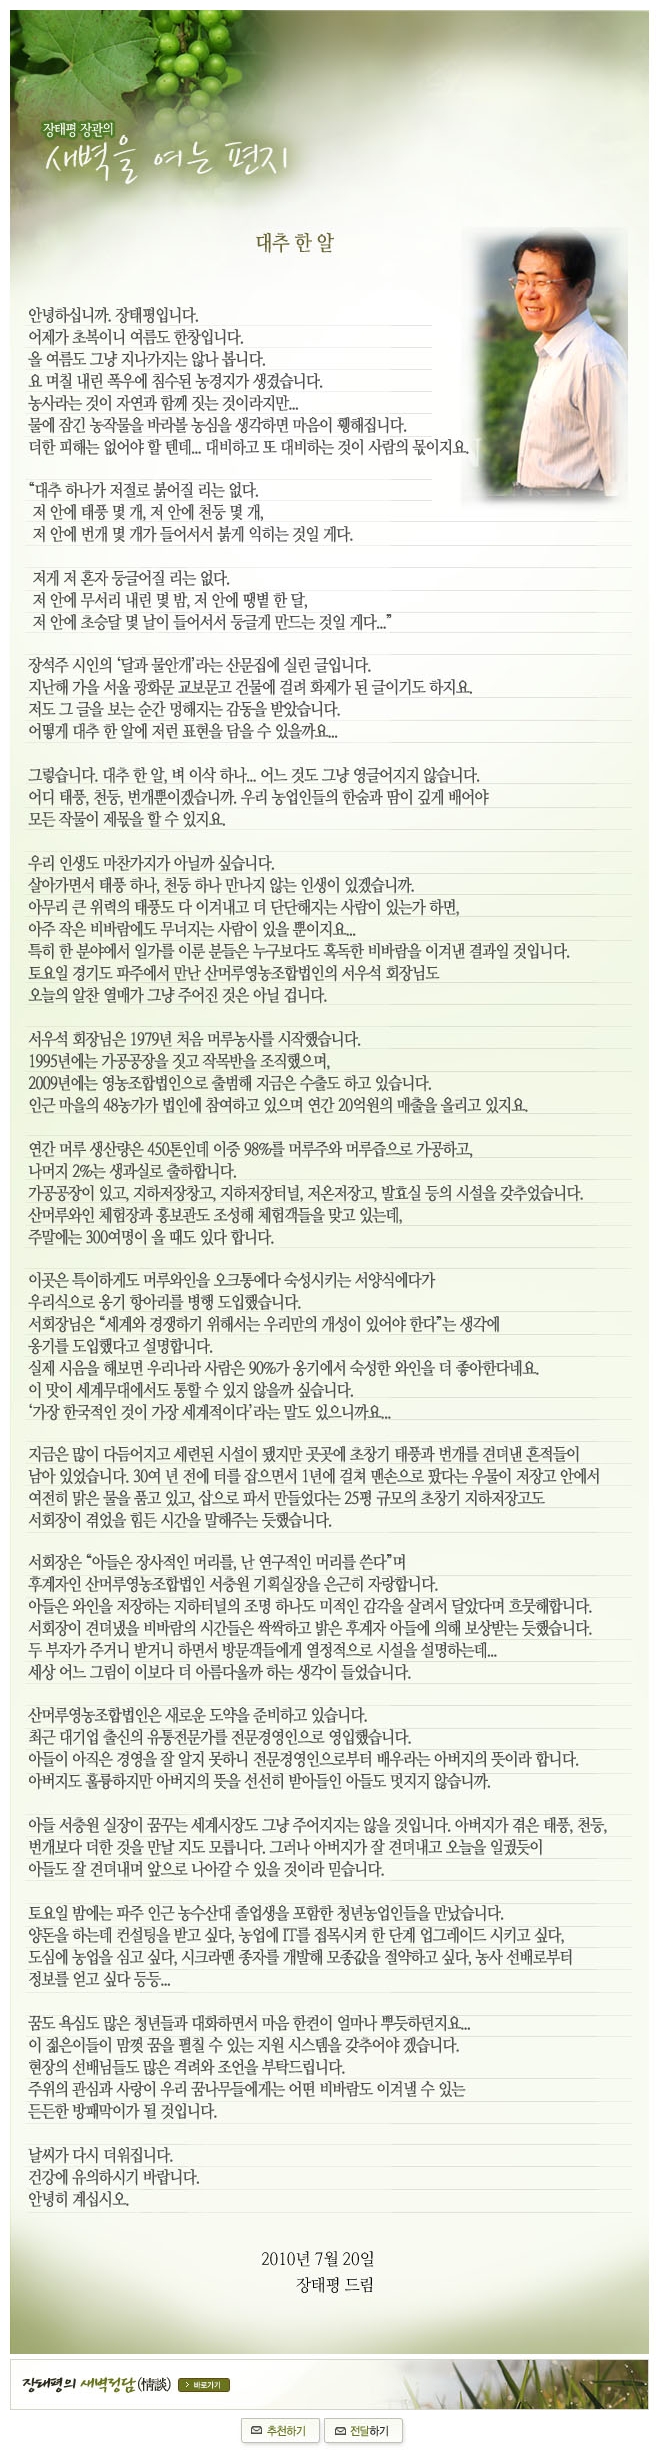 장태평 장관의
새벽을 여는 편지
대추 한 알
안녕하십니까. 장태평입니다.
어제가 초복이니 여름도 한창입니다.
올 여름도 그냥 지나가지는 않나 봅니다.
요 며칠 내린 폭우에 침수된 농경지가 생겼습니다.
농사라는 것이 자연과 함께 짓는 것이라지만...
물에 잠긴 농작물을 바라볼 농심을 생각하면 마음이 휑해집니다.
더한 피해는 없어야 할 텐데... 대비하고 또 대비하는 것이 사람의 몫이지요.
“대추 하나가 저절로 붉어질 리는 없다.
저 안에 태풍 몇 개, 저 안에 천둥 몇 개,
저 안에 번개 몇 개가 들어서서 붉게 익히는 것일 게다.
저게 저 혼자 둥글어질 리는 없다.
저 안에 무서리 내린 몇 밤, 저 안에 땡볕 한 달,
저 안에 초승달 몇 날이 들어서서 둥글게 만드는 것일 게다...”
장석주 시인의 ‘달과 물안개’라는 산문집에 실린 글입니다.
지난해 가을 서울 광화문 교보문고 건물에 걸려 화제가 된 글이기도 하지요.
저도 그 글을 보는 순간 멍해지는 감동을 받았습니다.
어떻게 대추 한 알에 저런 표현을 담을 수 있을까요...
그렇습니다. 대추 한 알, 벼 이삭 하나... 어느 것도 그냥 영글어지지 않습니다.
어디 태풍, 천둥, 번개뿐이겠습니까. 우리 농업인들의 한숨과 땀이 깊게 배어야
모든 작물이 제몫을 할 수 있지요.
우리 인생도 마찬가지가 아닐까 싶습니다.
살아가면서 태풍 하나, 천둥 하나 만나지 않는 인생이 있겠습니까.
아무리 큰 위력의 태풍도 다 이겨내고 더 단단해지는 사람이 있는가 하면,
아주 작은 비바람에도 무너지는 사람이 있을 뿐이지요...
특히 한 분야에서 일가를 이룬 분들은 누구보다도 혹독한 비바람을 이겨낸 결과일 것입니다.
토요일 경기도 파주에서 만난 산머루영농조합법인의 서우석 회장님도
오늘의 알찬 열매가 그냥 주어진 것은 아닐 겁니다.
서우석 회장님은 1979년 처음 머루농사를 시작했습니다.
1995년에는 가공공장을 짓고 작목반을 조직했으며,
2009년에는 영농조합법인으로 출범해 지금은 수출도 하고 있습니다.
인근 마을의 48농가가 법인에 참여하고 있으며 연간 20억원의 매출을 올리고 있지요.
연간 머루 생산량은 450톤인데 이중 98%를 머루주와 머루즙으로 가공하고,
나머지 2%는 생과실로 출하합니다.
가공공장이 있고, 지하저장창고, 지하저장터널, 저온저장고, 발효실 등의 시설을 갖추었습니다.
산머루와인 체험장과 홍보관도 조성해 체험객들을 맞고 있는데,
주말에는 300여명이 올 때도 있다 합니다.
이곳은 특이하게도 머루와인을 오크통에다 숙성시키는 서양식에다가
우리식으로 옹기 항아리를 병행 도입했습니다.
서회장님은 “세계와 경쟁하기 위해서는 우리만의 개성이 있어야 한다”는 생각에
옹기를 도입했다고 설명합니다.
실제 시음을 해보면 우리나라 사람은 90%가 옹기에서 숙성한 와인을 더 좋아한다네요.
이 맛이 세계무대에서도 통할 수 있지 않을까 싶습니다.
‘가장 한국적인 것이 가장 세계적이다’라는 말도 있으니까요...
지금은 많이 다듬어지고 세련된 시설이 됐지만 곳곳에 초창기 태풍과 번개를 견뎌낸 흔적들이
남아 있었습니다. 30여 년 전에 터를 잡으면서 1년에 걸쳐 맨손으로 팠다는 우물이 저장고 안에서
여전히 맑은 물을 품고 있고, 삽으로 파서 만들었다는 25평 규모의 초창기 지하저장고도
서회장이 겪었을 힘든 시간을 말해주는 듯했습니다.
서회장은 “아들은 장사적인 머리를, 난 연구적인 머리를 쓴다”며
후계자인 산머루영농조합법인 서충원 기획실장을 은근히 자랑합니다.
아들은 와인을 저장하는 지하터널의 조명 하나도 미적인 감각을 살려서 달았다며 흐뭇해합니다.
서회장이 견뎌냈을 비바람의 시간들은 싹싹하고 밝은 후계자 아들에 의해 보상받는 듯했습니다.
두 부자가 주거니 받거니 하면서 방문객들에게 열정적으로 시설을 설명하는데...
세상 어느 그림이 이보다 더 아름다울까 하는 생각이 들었습니다.
산머루영농조합법인은 새로운 도약을 준비하고 있습니다.
최근 대기업 출신의 유통전문가를 전문경영인으로 영입했습니다.
아들이 아직은 경영을 잘 알지 못하니 전문경영인으로부터 배우라는 아버지의 뜻이라 합니다.
아버지도 훌륭하지만 아버지의 뜻을 선선히 받아들인 아들도 멋지지 않습니까.
아들 서충원 실장이 꿈꾸는 세계시장도 그냥 주어지지는 않을 것입니다. 아버지가 겪은 태풍, 천둥,
번개보다 더한 것을 만날 지도 모릅니다. 그러나 아버지가 잘 견뎌내고 오늘을 일궜듯이
아들도 잘 견뎌내며 앞으로 나아갈 수 있을 것이라 믿습니다.
토요일 밤에는 파주 인근 농수산대 졸업생을 포함한 청년농업인들을 만났습니다.
양돈을 하는데 컨설팅을 받고 싶다, 농업에 IT를 접목시켜 한 단계 업그레이드 시키고 싶다,
도심에 농업을 심고 싶다, 시크라멘 종자를 개발해 모종값을 절약하고 싶다, 농사 선배로부터
정보를 얻고 싶다 등등...
꿈도 욕심도 많은 청년들과 대화하면서 마음 한켠이 얼마나 뿌듯하던지요...
이 젊은이들이 맘껏 꿈을 펼칠 수 있는 지원 시스템을 갖추어야 겠습니다.
현장의 선배님들도 많은 격려와 조언을 부탁드립니다.
주위의 관심과 사랑이 우리 꿈나무들에게는 어떤 비바람도 이겨낼 수 있는
든든한 방패막이가 될 것입니다.
날씨가 다시 더워집니다.
건강에 유의하시기 바랍니다.
안녕히 계십시오.
2010년 7월 20일
장태평 드림
장태평의 새벽정담(情談) 바로가기
추천하기 전달하기